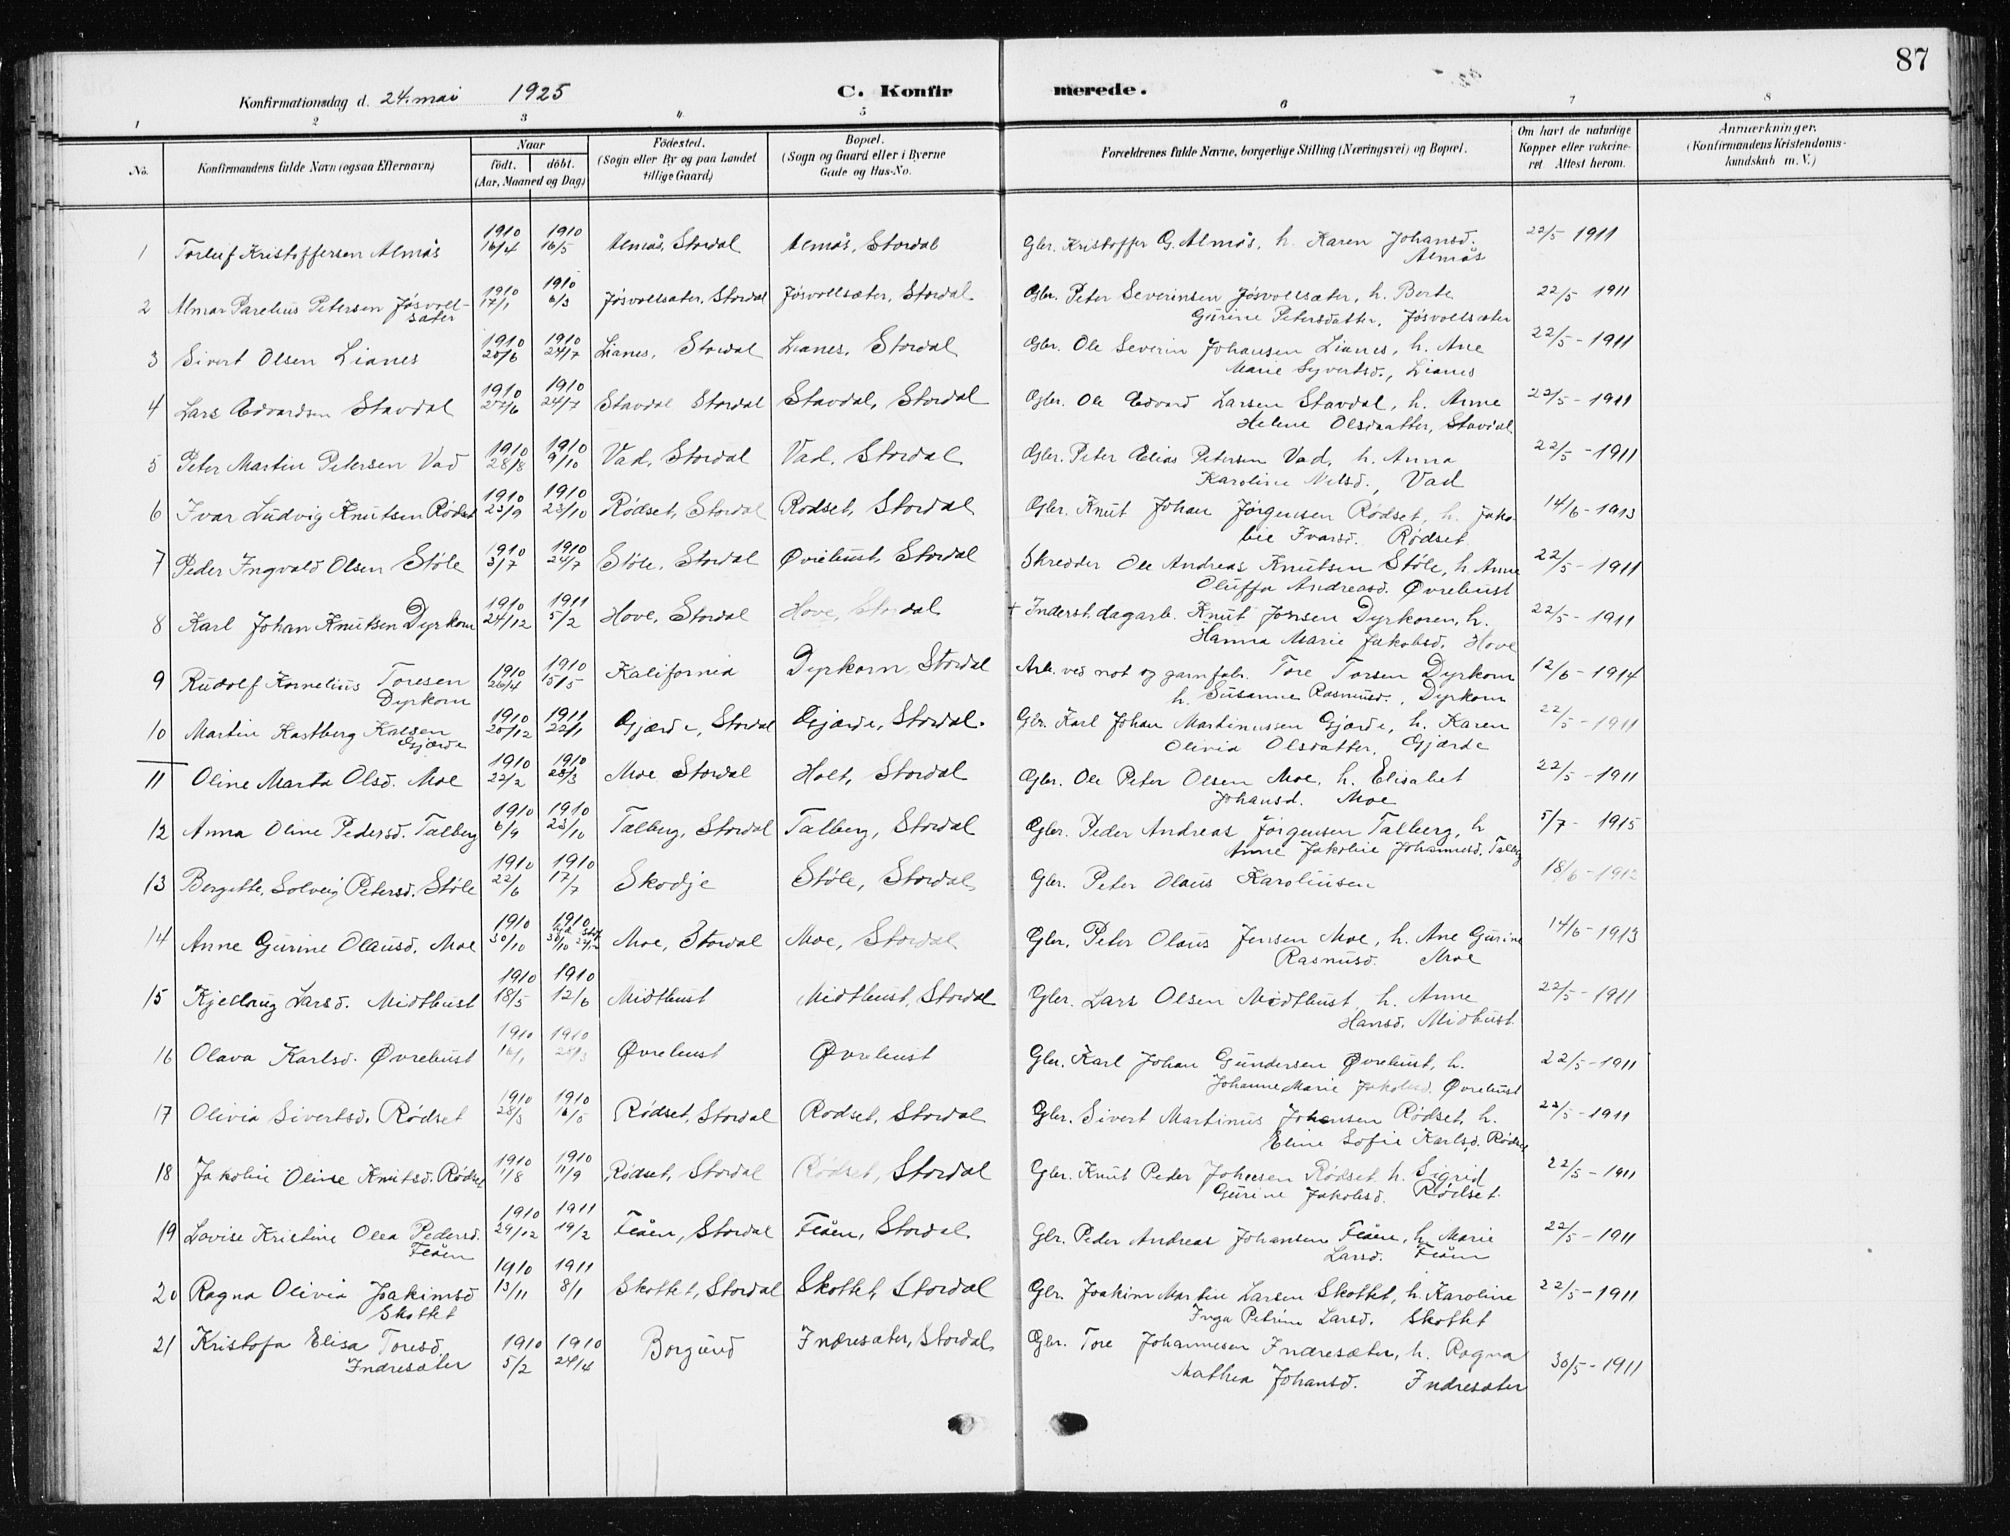 87
Konfirmationsdag d. 24. mai 1925 C. Konfirmerede.
1 2 3 4. 5 6 7 8
No. Konfirmandens fulde Navn (ogsaa Efternavn) Naar født. døbt. (Aar, Maaned og Dag) Fødested. (Sogn eller By og paa Landet tillige Gaard) Bopæl. (Sogn og Gaard eller i Byerne Gade og Hus-No. Forældrenes fulde Navne, borgerlige Stilling (Næringsvei) og Bopæl. Om havt de naturlige Kopper eller vakcineret Attest herom. Anmærkninger. (Konfirmandens Kristendomskundskab m. V.)
1 Torleif Kristoffersen Almås 1910 16/4 1910 16/5 Almås, Stordal Almås, Stordal Gbr. Kristoffer G. Almås, h. Karen Johansd. 22/5 1911
Almås
2 Almar Parelius Petersen Jøsvoll- 1910 17/1 1910 6/3 Jøsvollsæter, Stordal Jøsvollsæter, Stordal Gbr. Peter Severinsen Jøsvollsæter, h. Berte 22/5 1911
sæter Gurine Petersdatter, Jøsvollsæter
3 Sivert Olsen Lianes 1910 20/6 1910 24/7 Lianes, Stordal Lianes, Stordal Gbr. Ole Severin Johansen Lianes, h. Ane 22/5 - 1911
Marie Syvertsd., Lianes
4 Lars Edvardsen Stavdal 1910 27/6 1910 24/7 Stavdal Stordal Stavdal, Stordal Gbr. Ole Edvard Larsen Stavdal, h. Anne 22/5 - 1911
Helene Olsdaatter, Stavdal
5 Peter Martin Petersen Vad 1910 28/8 1910 9/10 Vad, Stordal Vad, Stordal Gbr. Peter Elias Petersen Vad, h. Anna 22/5 - 1911
Karoline Nilsd., Vad
6 Ivar Ludvig Knutsen Rødset 1910 23/9 1910 23/10 Rødset, Stordal Rødset, Stordal Gbr. Knut Johan Jørgensen Rødset, h. Jako- 14/6 - 1913
bie Ivarsd. Rødset
7 Peder Ingvald Olsen Støle 1910 3/7 1910 24/7 Støle, Stordal Øvrebust, Stordal Skredder Ole Andreas Knutsen Støle, h. Anne 22/5 - 1911
Oluffa Andreasd. Øvrebust
8 Karl Johan Knutsen Dyrkorn 1910 24/12 1911 5/2 Hove, Stordal Hove, Stordal + Inderst. dagarb. Knut Jonsen Dyrkoren, h. 22/5 - 1911
Hanna Marie Jakobsd, Hove
9 Rudolf Kornelius Toresen 1910 26/4 1910 15/5 Kalifornia Dyrkorn Stordal Arb. ved not og garnfabr. Tore Torsen Dyrkorn 12/6 - 1914
Dyrkorn h. Susanne Rasmusd., Dyrkorn
10 Martin Kastberg Kalsen 1910 20/12 1911 22/1 Gjærde, Stordal Gjærde, Stordal. Gbr. Karl Johan Martinussen Gjærde, h. Karen 22/5 - 1911
Gjærde Olivia Olsdatter, Gjærde
11 Oline Marta Olsd. Moe 1910 22/2 1910 28/3 Moe Stordal Holt, Stordal Gbr. Ole Peter Olsen Moe, h. Elisabet 22/5 - 1911
Johansd. Moe
12 Anna Oline Pedersd. Talberg 1910 6/9 1910 23/10 Talberg, Stordal Talberg, Stordal Gbr. Peder Andreas Jørgensen Talberg, h 5/7 - 1915
Anne Jakobie Johannesd. Talberg
13 Bergitte Solveig Petersd. Støle 1910 22/6 1910 17/7 Skodje Støle, Stordal Gbr. Peter Olaus Karoliussen 18/6 - 1912
14 Anne Gurine Olausd. Moe 1910 30/10 1910 30/10 Moe, Stordal Moe, Stordal Gbr. Peter Olaus Jensen Moe, h. Ane Gurine 14/6 - 1913
Rasmusd. Moe
15 Kjellaug Larsd. Midthust 1910 18/5 1910 12/6 Midtbust Midtbust, Stordal Gbr. Lars Olsen Midtbust, h. Anne 22/5 - 1911
Hansd. Midbust
16 Olava Karlsd. Øvrebust 1910 16/1 1910 28/3 Øvrebust Øvrebust Gbr. Karl Johan Gundersen Øvrebust, h. 22/5 - 1911
Johanne Marie Jakobsd. Øvrebust
17 Olivia Sivertsd. Rødset 1910 28/3 1910 16/5 Rødset, Stordal Rødset, Stordal Gbr. Sivert Martinus Johansen Rødset, h. 22/5 - 1911
Eline Sofie Karlsd. Rødset
18 Jakobie Oline Knutsd. Rødset 1910 1/8 1910 11/9 Rødset, Stordal Rødset, Stordal Gbr. Knut Peder Johnsen Rødset h. Sigrid 22/5 - 1911
Gurine Jakobsd. Rødset.
19 Lovise Kristine Olea Pedersd. 1910 29/12 1911 19/2 Flåen, Stordal Flåen, Stordal Gbr. Peder Andreas Johansen Flåen, h. Marie 22/5 - 1911
Flåen Larsd. Flåen
20 Ragna Olivia Joakimsd 1910 13/11 1911 8/1 Skottet, Stordal Skottet, Stordal Gbr. Joakim Martin Larsen Skottet, h. Karoline 22/5 - 1911
Skottet Inga Petrine Larsd. Skottet
21 Kristofa Elisa Toresd. 1910 5/2 1910 24/4 Borgund Indresæter, Stordal Gbr. Tore Johannesen Indresæter, h. Ragna 30/5 - 1911
Indresæter Mathea Johansd. Indresæter